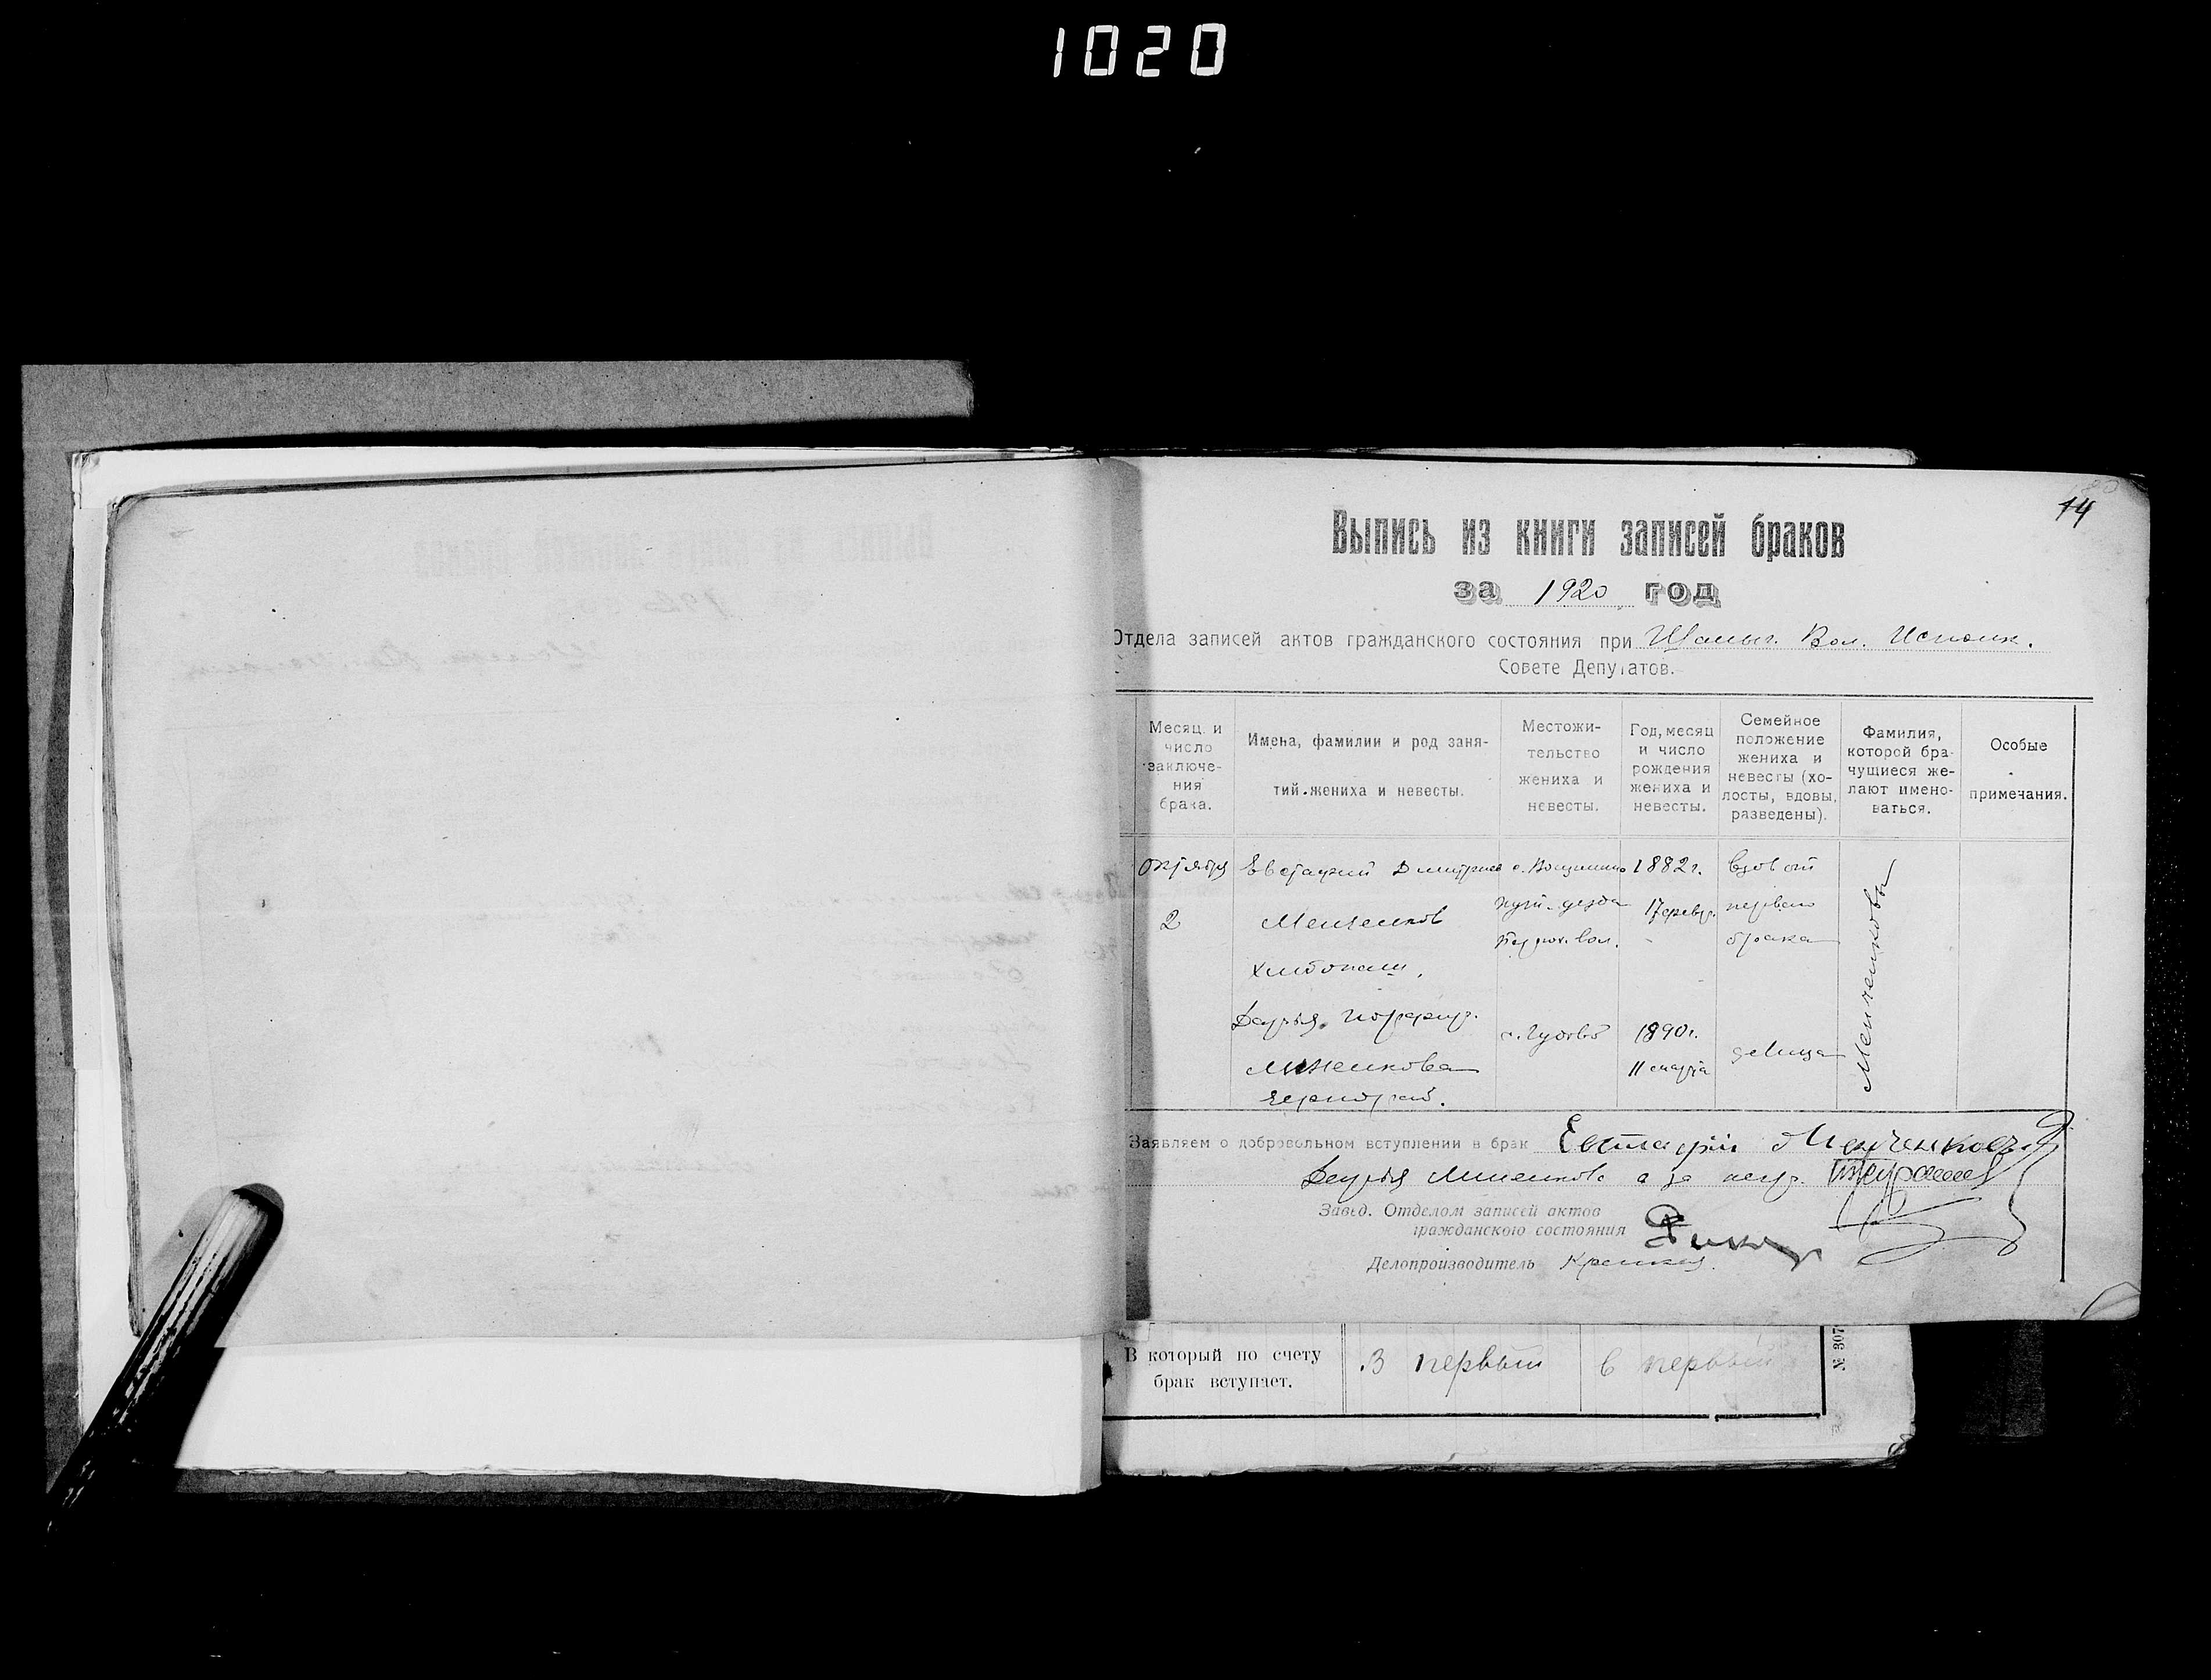 1020
14
Выпись из книги записей браков
за 1920 год
Отдела записей актов гражданского состояния при Шалыг. Вол. Исполк.
Совете Депутатов.
Месяц и число заключения брака.
Имена, фамилии и род занятий жениха и невесты.
Местожительство жениха и невесты.
Год, месяц и число рождения жениха и невесты.
Семейное положение жениха и невесты (холосты, вдовы, разведены).
Фамилия, которой брачущиеся желают именоваться.
Особые примечания.
Октября
2
Евстафий Дмитриев
Менченков
хлебопаш.
1882 г.
17 февр.
вдовый
первого
брака
Менченковы
Дарья Порфир.
Миненкова
чернораб.
1890 г.
11 марта
девица
Заявляем о добровольном вступлении в брак Евстафий Менченковъ
Дарья Миненкова а за негр.
Завед. Отделом записей актов
гражданского состояния
Делопроизводитель
В который по счету
брак вступает.
В первый
в первый
№ 307